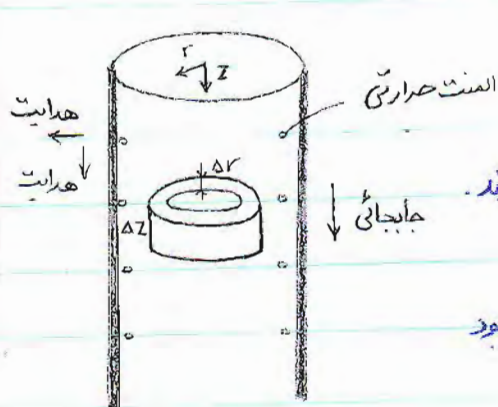 r
z
المنت حرارتی
هدایت
هدایت
Δr
Δz
جابجائی